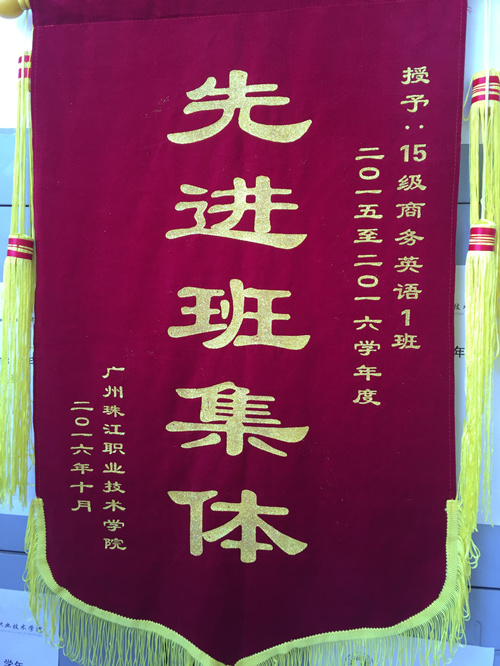 授予：15级商务英语1班
二〇一五至二〇一六学年度
先进班集体
广州珠江职业技术学院
二〇一六年十月